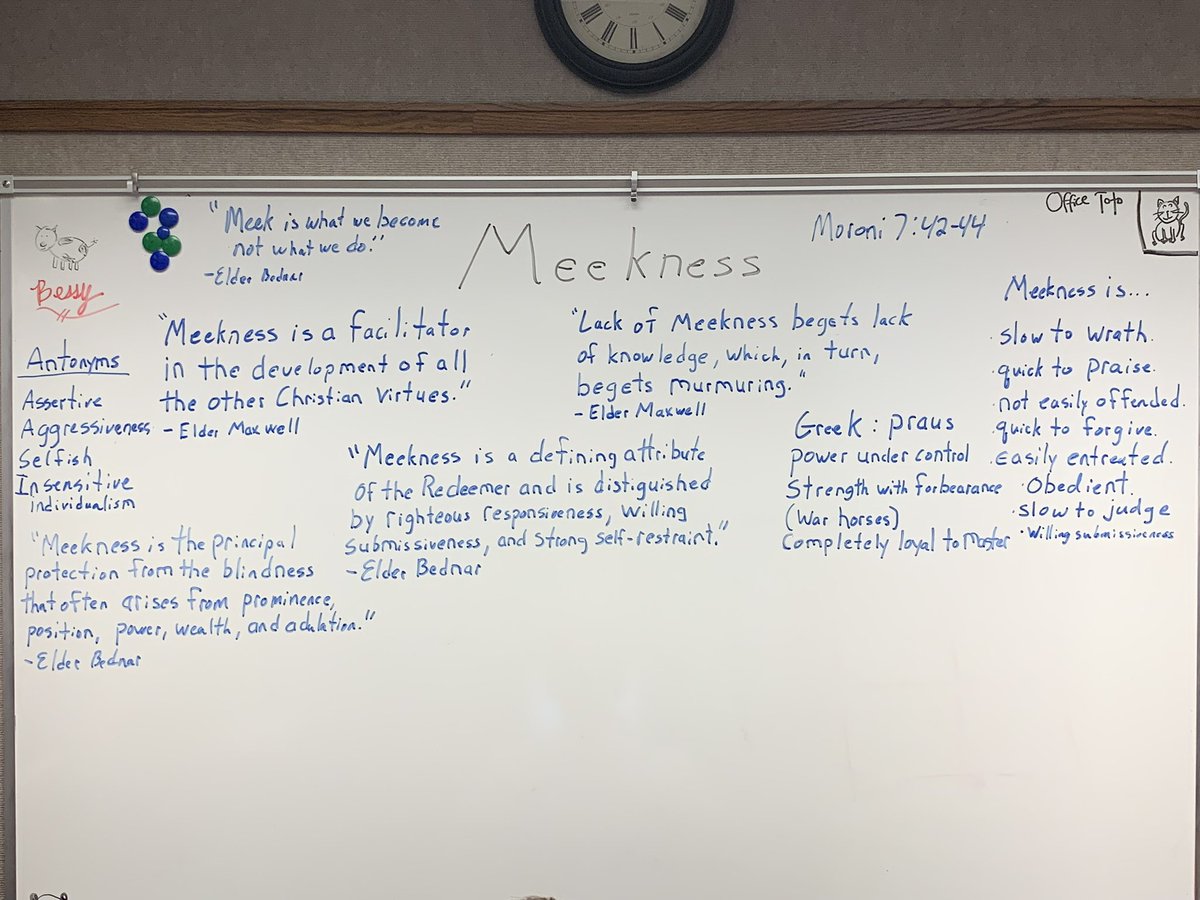 Meekness
"Meek is what we become
not what we do."
-Elder Bednar
Moroni 7:42-44
Office Toto
Bessy
Antonyms
Assertive
Aggressiveness
Selfish
Insensitive
individualism
"Meekness is a facilitator
in the development of all
the other Christian virtues."
- Elder Maxwell
"Lack of Meekness begets lack
of knowledge, which, in turn,
begets murmuring."
- Elder Maxwell
"Meekness is a defining attribute
of the Redeemer and is distiguished
by righteous responsiveness, willing
submissiveness, and strong self-restraint."
-Elder Bednar
"Meekness is the principal
protection from the blindness
that often arises from prominence,
position, power, wealth, and adulation."
-Elder Bednar
Greek: praus
power under control
Strength with forbearance
(War horses)
Completely loyal to Master
Meekness is...
· slow to wrath.
· quick to praise.
· not easily offended.
· quick to forgive.
· easily entreated.
· Obedient.
· slow to judge
· Willing submissiveness